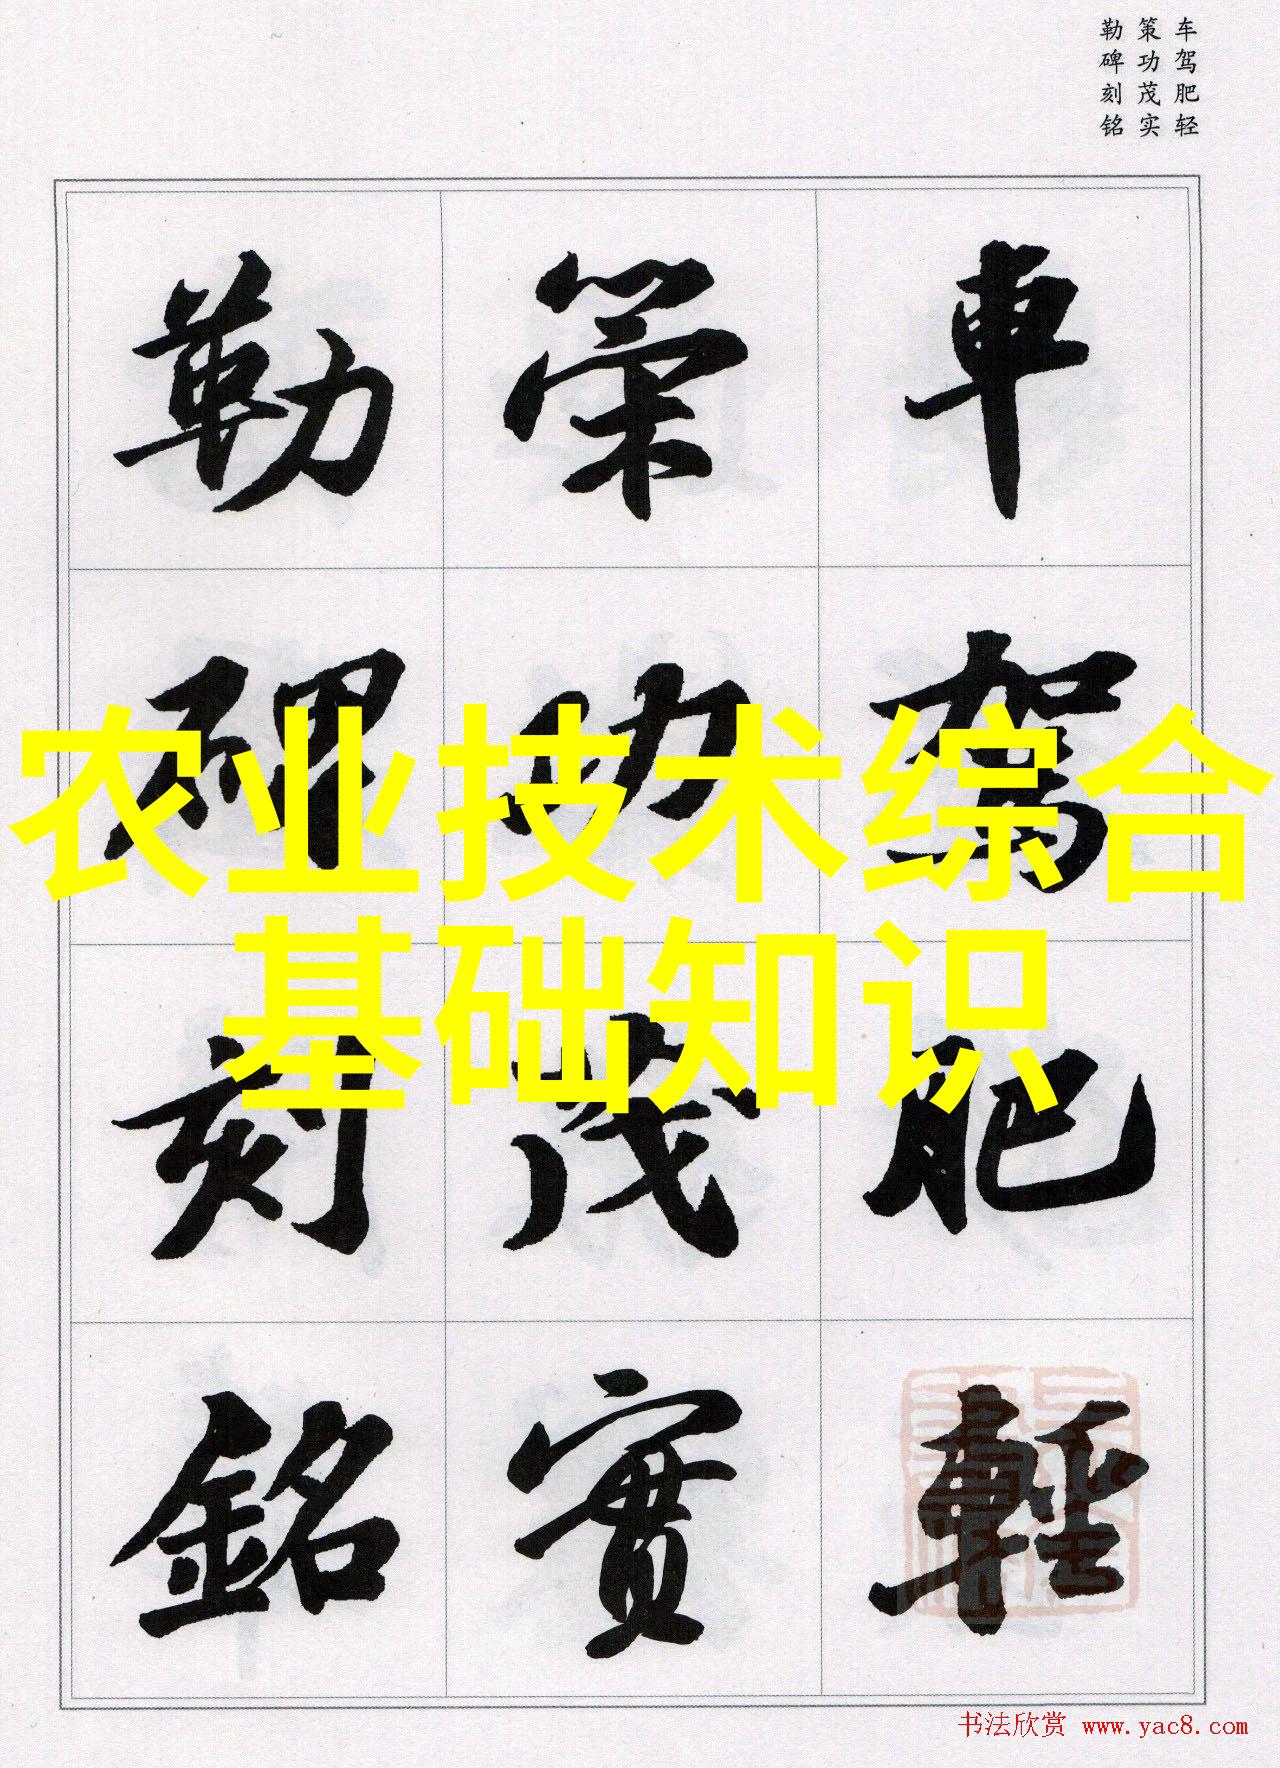 车驾肥轻
策功茂实
勒碑刻铭
車駕肥輕
策功茂實
勒碑刻銘
农业技术综合
基础知识
书法欣赏 www.yac8.com